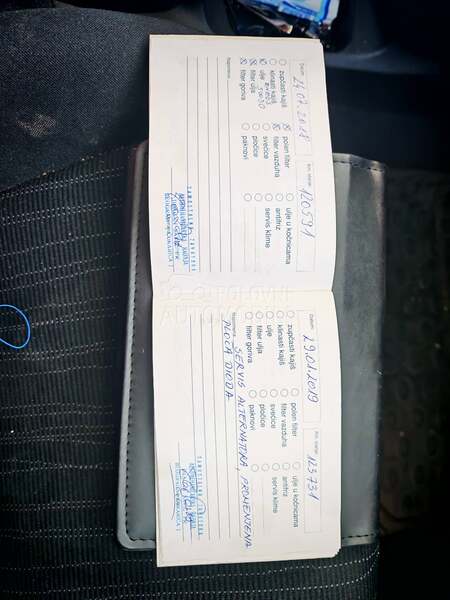 Datum: 24.07.2018
Km. stanje: 120591
○ zupčasti kajiš ⊗ polen filter ○ ulje u kočnicama
○ klinasti kajiš ⊗ filter vazduha ○ antifriz
⊗ ulje 5W30 ○ svećice ○ servis klime
⊗ filter ulja ○ pločice ○
⊗ filter goriva ○ paknovi
Napomena:
Datum: 29.01.2019
Km. stanje: 123731
○ zupčasti kajiš ○ polen filter ○ ulje u kočnicama
○ klinasti kajiš ○ filter vazduha ○ antifriz
○ ulje ○ svećice ○ servis klime
○ filter ulja ○ pločice ○
○ filter goriva ○ paknovi
Napomena: SERVIS ALTERNATORA, PROMENJENA
PLOČA DIODA